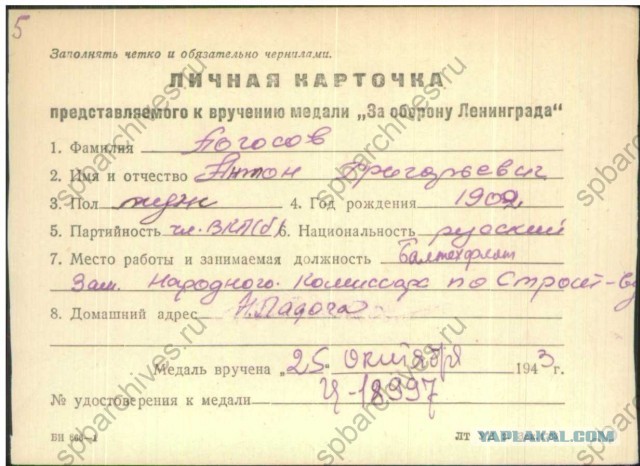 5
Заполнять четко и обязательно чернилами.
ЛИЧНАЯ КАРТОЧКА
представляемого к вручению медали „За оборону Ленинграда“
1. Фамилия Погосов
2. Имя и отчество Антон Григорьевич
3. Пол муж 4. Год рождения 1902
5. Партийность чл. ВКП(б) 6. Национальность русский
7. Место работы и занимаемая должность Балтехфлот
Зам. Народного Комиссара по Строит-ву
8. Домашний адрес Н. Ладога
Медаль вручена „25“ октября 1943 г.
№ удостоверения к медали Ц-18997
БИ 666—1
ЛТ
YAPLAKAL.COM
spbarchives.ru
spbarchives.ru
spbarchives.ru
spbarchives.ru
spbarchives.ru
spbarchives.ru